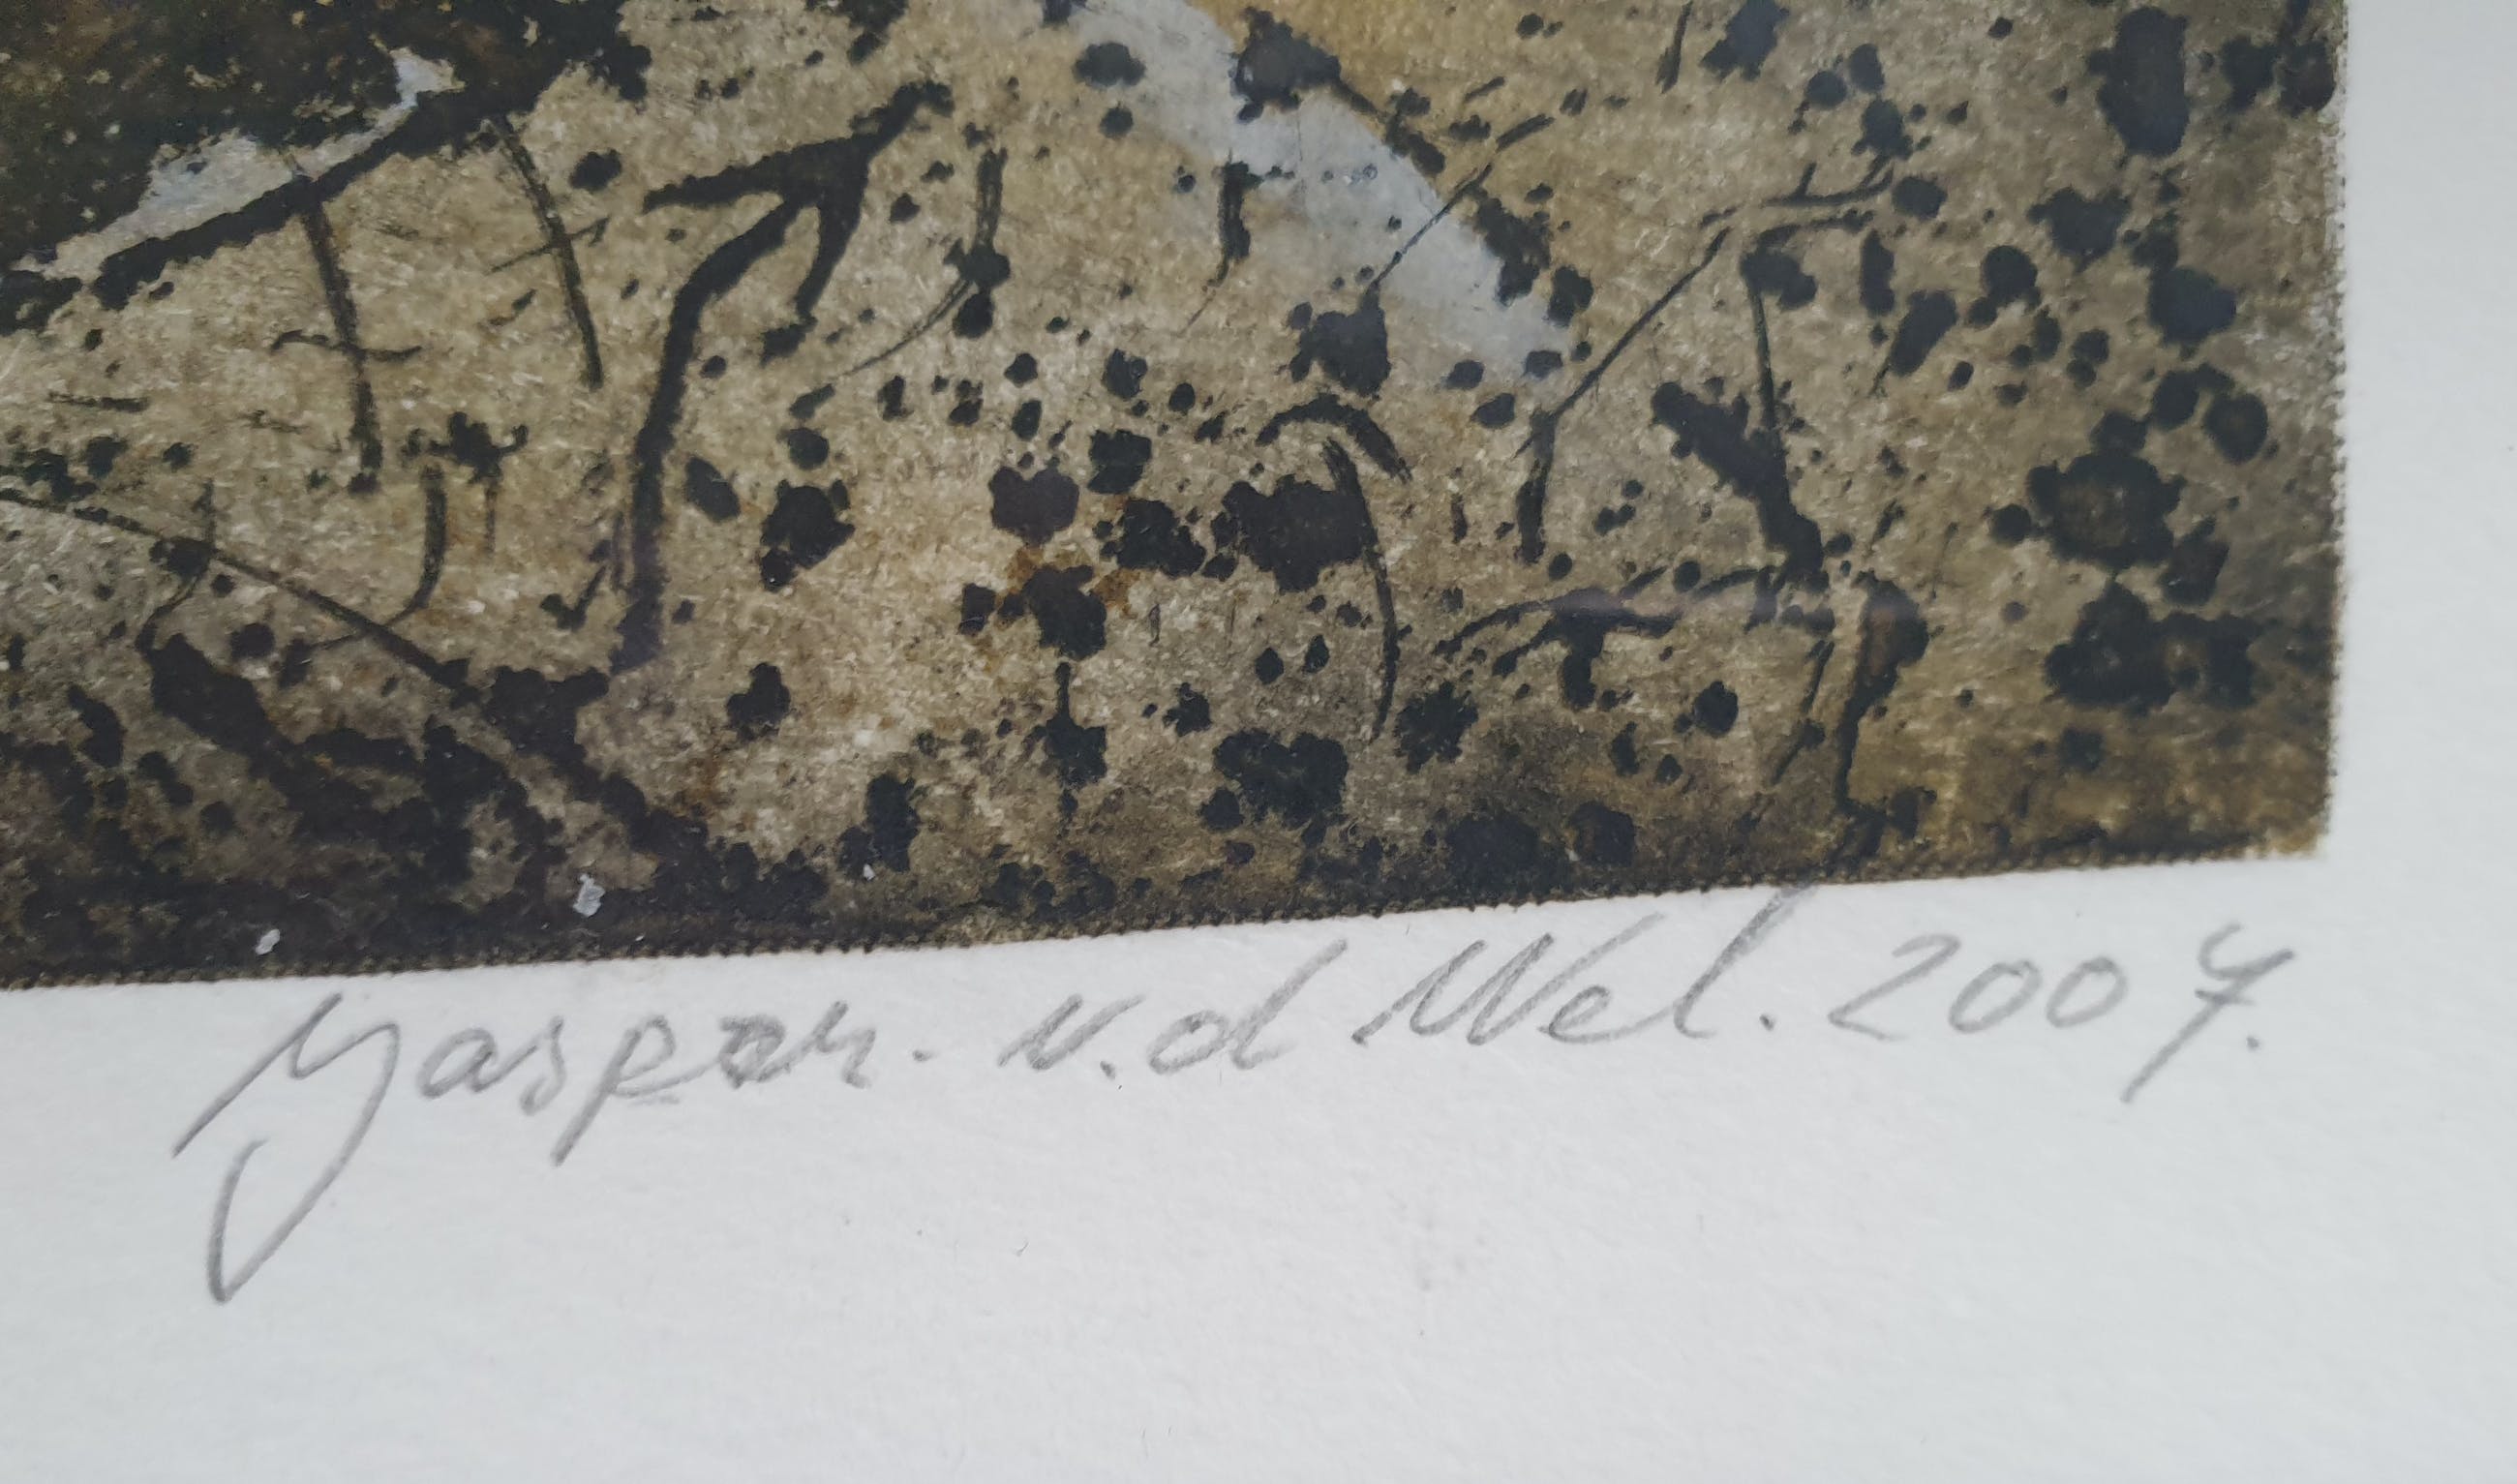 Jaspar. v.d Wel. 2007.